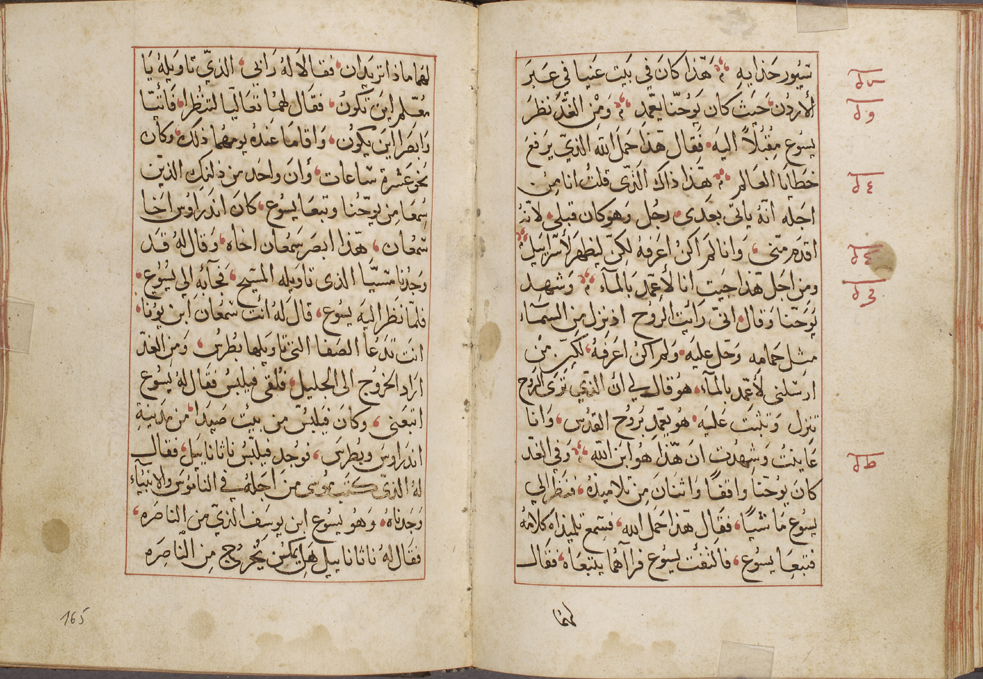 سيور حذايه ۞ هذا كان في بيت عنيا في عبر
الأردن حيث كان يوحنا يعمد ۞ ومن الغد نظر
يسوع مقبلاً اليه فقال هذا حمل الله الذي يرفع
خطايا العالم ۞ هذا ذاك الذي قلت انا من
اجله انه ياتي بعدي رجل وهو كان قبلي لانه
اقدم مني وانا لم اكن اعرفه لكن ليظهر لأسراييل
ومن اجل هذا جيت انا لأعمد بالمآء ۞ وشهد
يوحنا وقال اني رايت الروح اذ نزل من السمآء
مثل حمامه وحل عليه ولم اكن اعرفه لكن من
ارسلني لأعمد بالمآء هو قال لي ان الذي ترى الروح
تنزل وتثبت عليه هو يعمد بروح القدس وانا
عاينت وشهدت ان هذا هو ابن الله ۞ وفي الغد
كان يوحنا واقفاً واثنان من تلاميذه فنظر الي
يسوع ماشياً فقال هذا حمل الله فسمع تلميذاه كلامه
فتبعا يسوع فالتفت يسوع فرآهما يتبعاه فقال
لهما
لهما ماذا تريدان فقالا له رابي الذي تاويله يا
معلم اين تكون فقال لهما تعاليا لتنظرا فأتيا
وابصرا اين يكون واقاما عنده يومهما ذلك وكان
نحو عشرة ساعات وأن واحد من ذلنك الذين
سمعا من يوحنا وتبعا يسوع كان اندراوس اخا
سمعان هذا ابصر سمعان اخاه وقال له قد
وجدنا مسيا الذي تاويله المسيح فجآء به الى يسوع
فلما نظر اليه يسوع قال له انت سمعان ابن يونا
انت تدعا الصفا التي تاويلها بطرس ومن الغد
اراد الخروج الى الجليل فلقى فيلبس فقال له يسوع
اتبعني وكان فيلبس من بيت صيدا من مدينة
اندراوس وبطرس فوجد فيلبس ناثاناييل فقال
له الذي كتب موسى من اجله في الناموس والانبيآء
وجدناه وهو يسوع ابن يوسف الذي من الناصره
فقال له ناثاناييل هل يمكن يخرج من الناصره
165